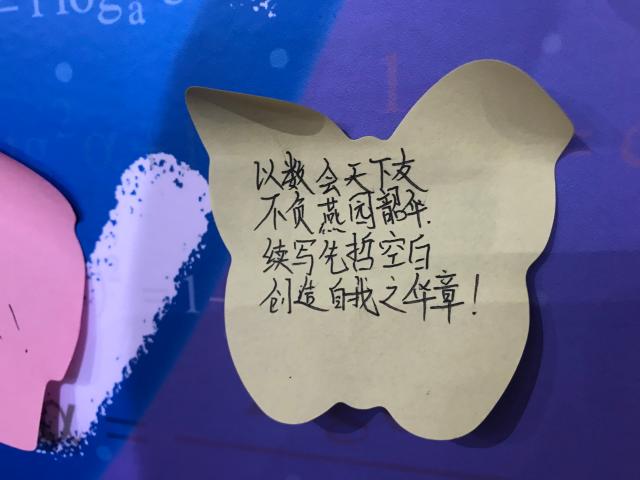 以数会天下友
不负燕园韶华.
续写先哲空白
创造自我之华章！